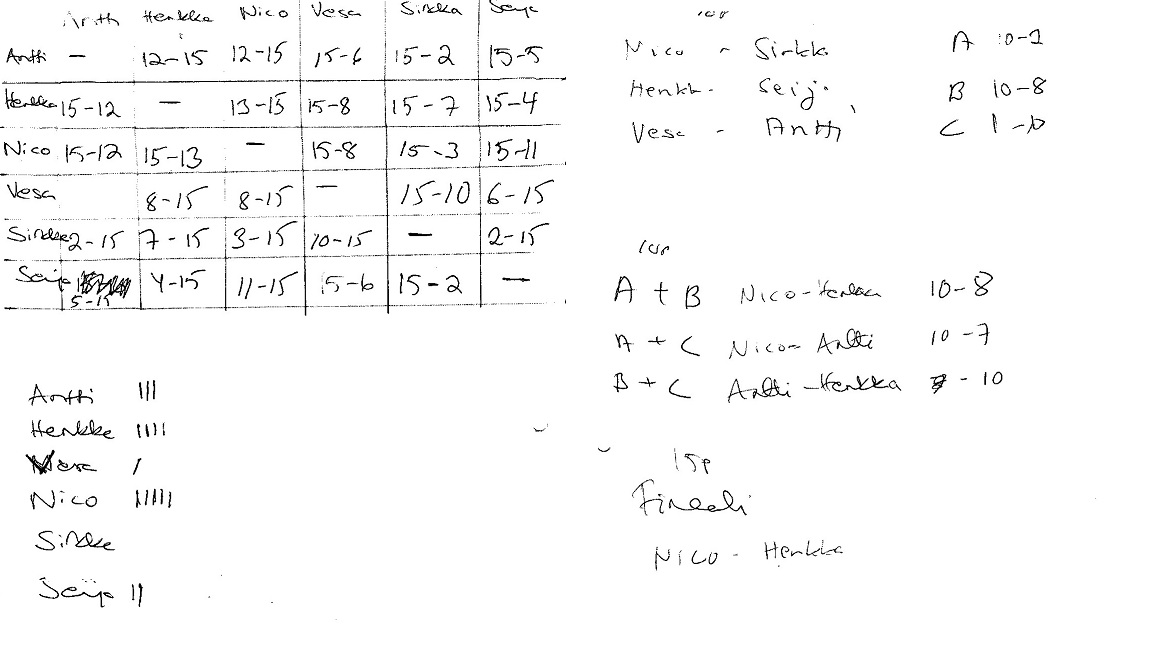 Antti Henkka Nico Vesa Sirkka Seija
Antti - 12-15 12-15 15-6 15-2 15-5
Henkka 15-12 - 13-15 15-8 15-7 15-4
Nico 15-12 15-13 - 15-8 15-3 15-11
Vesa 8-15 8-15 - 15-10 6-15
Sirkka 2-15 7-15 3-15 10-15 - 2-15
Seija 5-15 4-15 11-15 15-6 15-2 -
Antti |||
Henkka ||||
Vesa |
Nico |||||
Sirkka
Seija ||
10p
Nico - Sirkka A 10-1
Henkk - Seija B 10-8
Vesa - Antti C 1-10
10p
A + B Nico-Henkka 10-8
A + C Nico- Antti 10-7
B + C Antti-Henkka - 10
15p
Finaali
Nico - Henkka